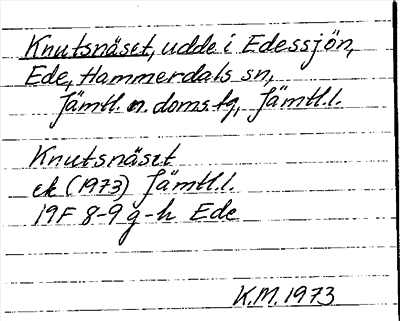 Knutsnäset, udde i Edessjön,
Ede, Hammerdals sn,
Jämtl. n. doms. tg, Jämtl.l.
Knutsnäset
ek (1973) Jämtl.l.
19F 8-9 g-h Ede
K.M. 1973